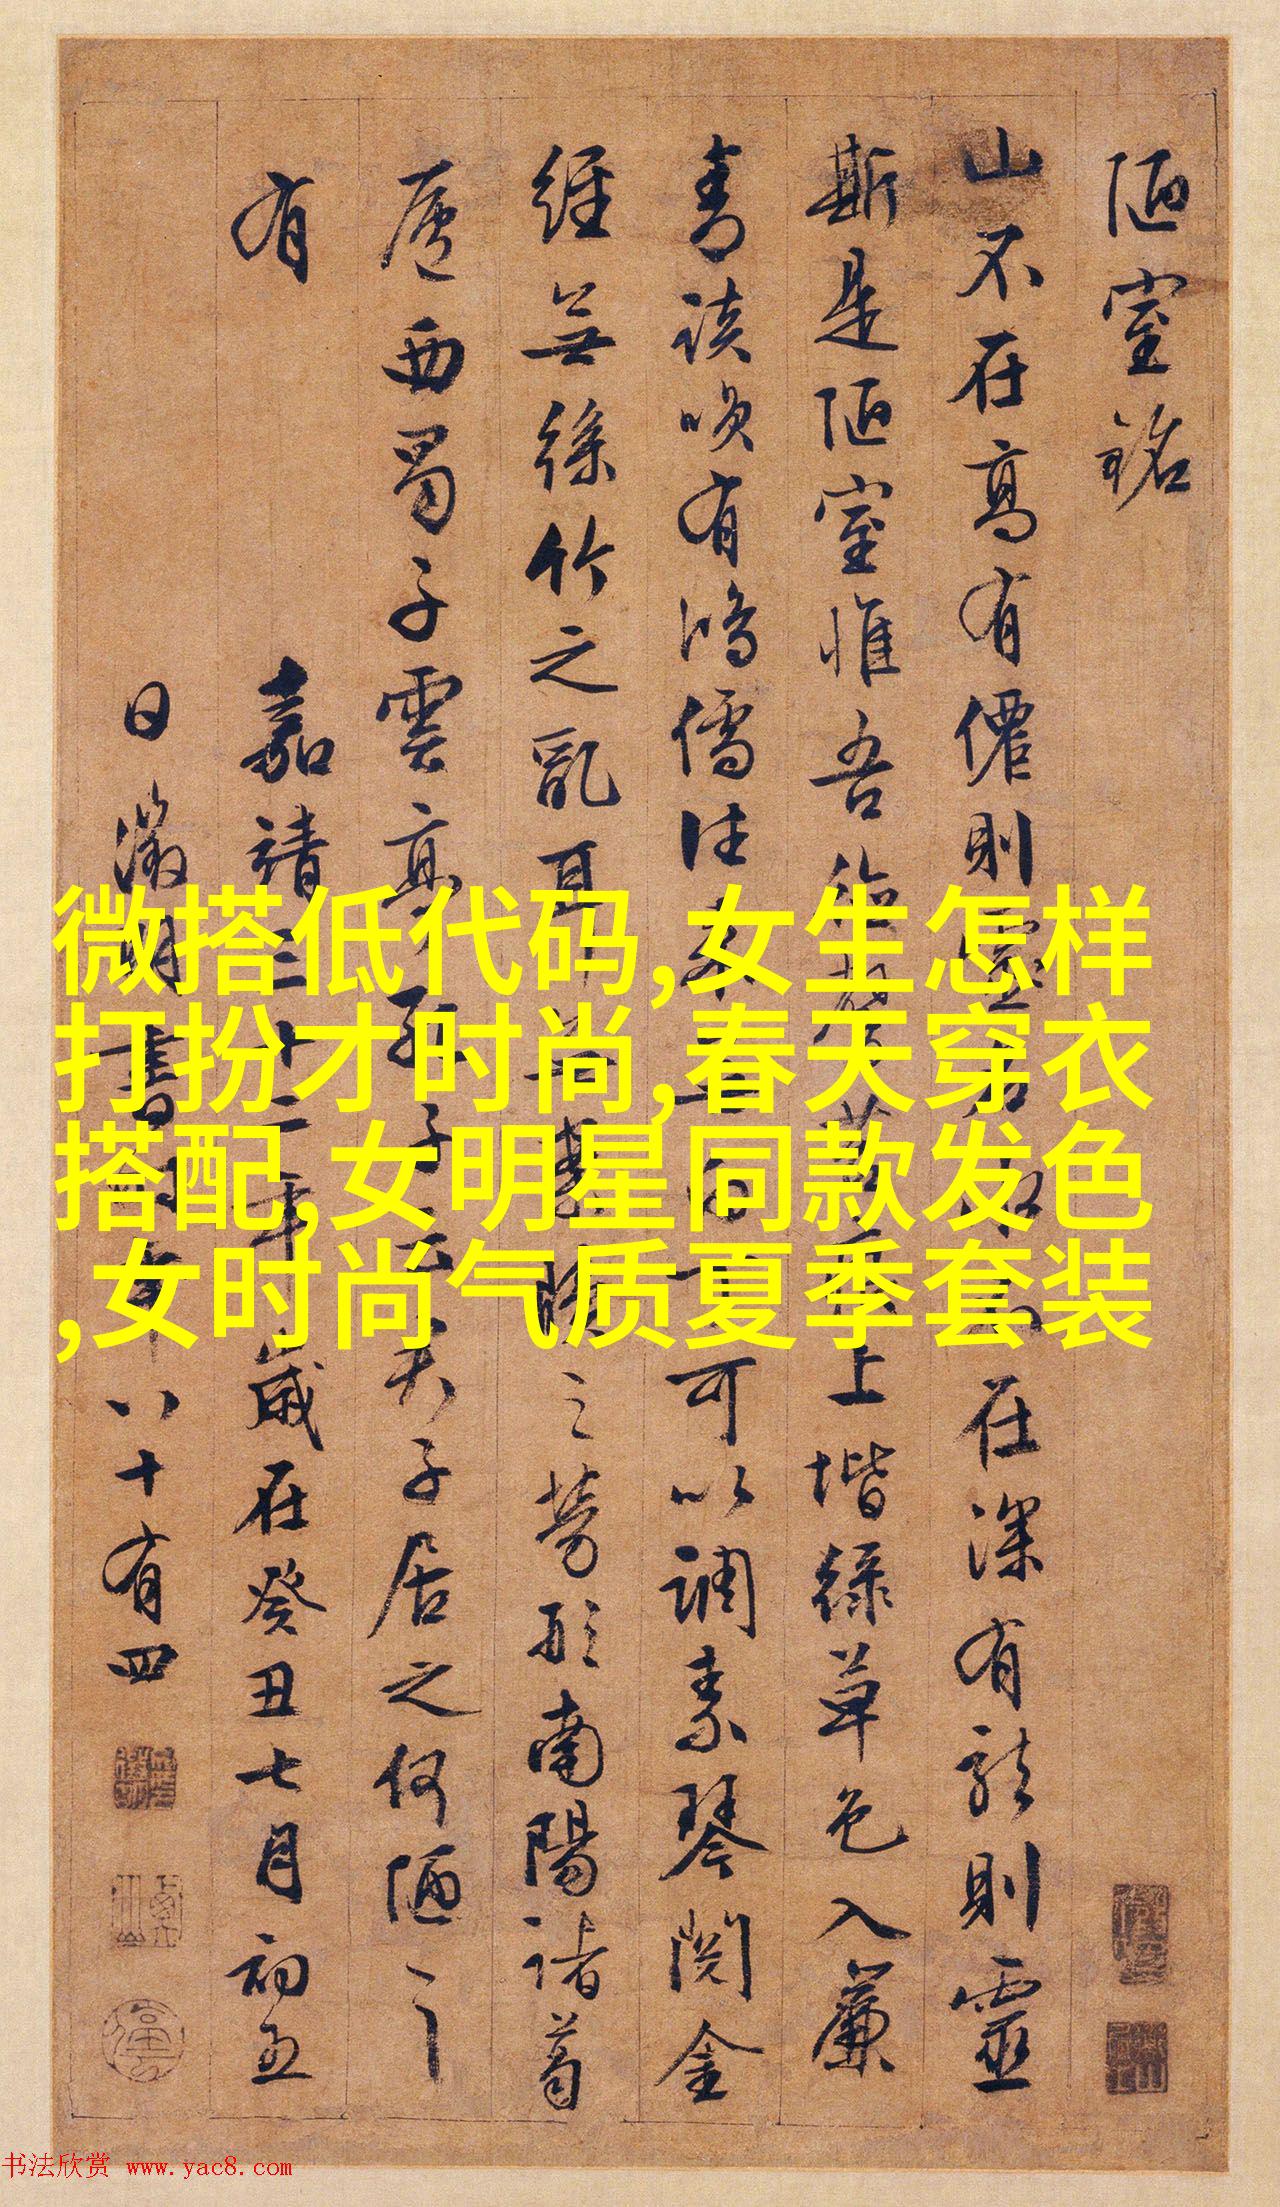 陋室銘
山不在高有僊則在深有龍則靈
斯是陋室惟吾上堦綠草色入簾
青談咲有鴻儒往來無白丁可以調素琴閱金
經無絲竹之亂耳無案牘之勞形南陽諸葛
廬西蜀子雲亭孔子云君子居之何陋之
有
嘉靖三十二年歲在癸丑七月初五
日徵明書時年八十有四
微搭低代码,女生怎样
打扮才时尚,春天穿衣
搭配,女明星同款发色
,女时尚气质夏季套装
书法欣赏 www.yac8.com